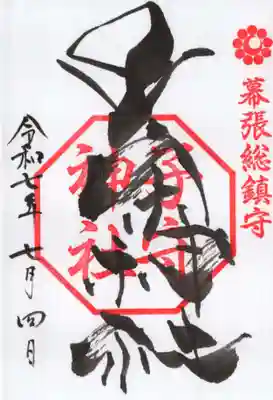 幕張総鎮守
子守
神社
子守神社
令和七年 七月四日